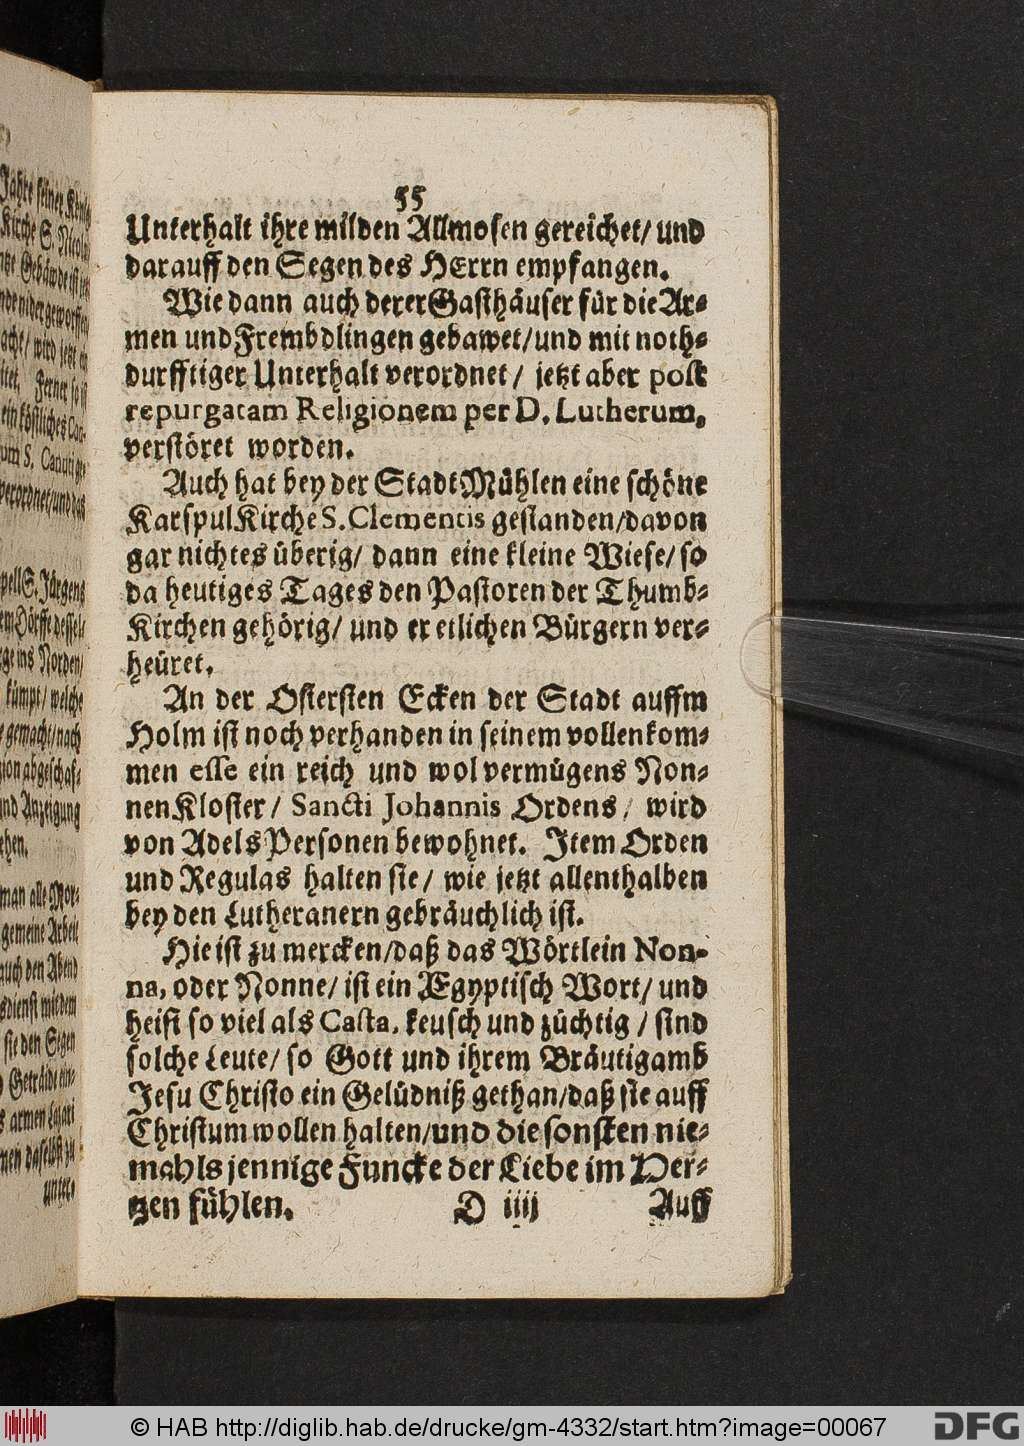 55
Unterhalt ihre milden Allmosen gereichet/ und
darauff den Segen des HErrn empfangen.
Wie dann auch derer Gasthäuser für die Ar-
men und Frembdlingen gebawet/ und mit noth-
durfftiger Unterhalt verordnet/ jetzt aber post
repurgatam Religionem per D. Lutherum,
verstöret worden.
Auch hat bey der StadtMühlen eine schöne
KarspulKirche S. Clementis gestanden/davon
gar nichtes überig/ dann eine kleine Wiese/ so
da heutiges Tages den Pastoren der Thumb-
Kirchen gehörig/ und er etlichen Bürgern ver-
heüret.
An der Ostersten Ecken der Stadt auffm
Holm ist noch verhanden in seinem vollenkom-
men esse ein reich und wolvermügens Non-
nenKloster/ Sancti Johannis Ordens/ wird
von AdelsPersonen bewohnet. Item Orden
und Regulas halten sie/ wie jetzt allenthalben
bey den Lutheranern gebräuchlich ist.
Hie ist zu mercken/daß das Wörtlein Non-
na, oder Nonne/ ist ein Ægyptisch Wort/ und
heist so viel als Casta, keusch und züchtig / sind
solche Leute/ so Gott und ihrem Bräutigamb
Jesu Christo ein Gelüdniß gethan/daß sie auff
Christum wollen halten/und die sonsten nie-
mahls jennige Funcke der Liebe im Her-
tzen fühlen. D iiij Auff
© HAB http://diglib.hab.de/drucke/gm-4332/start.htm?image=00067
DFG